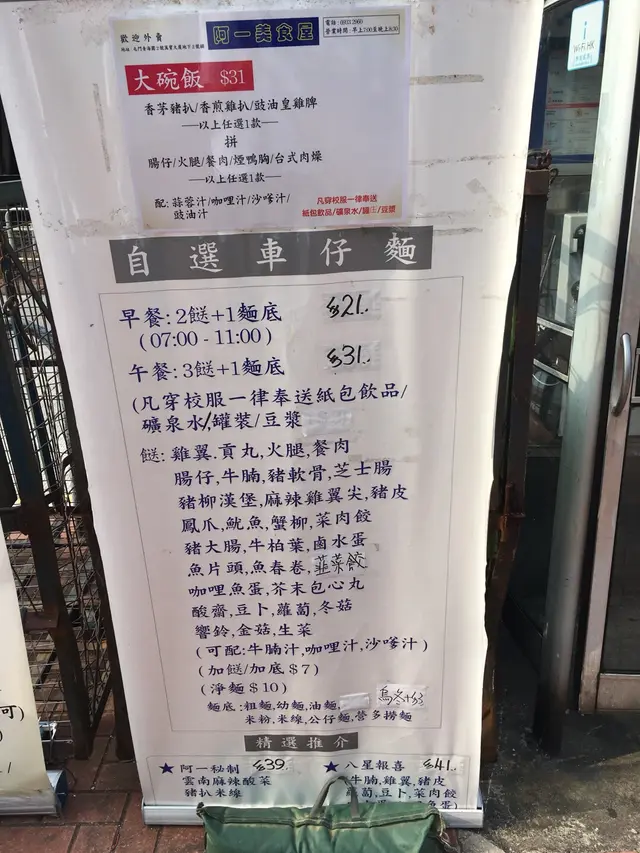 歡迎外賣
阿一美食屋
營業時間:早上7:00至晚上8:30
大碗飯 $31
香茅豬扒/香煎雞扒/豉油皇雞脾
以上任選1款
拼
腸仔/火腿/餐肉/煙鴨胸/台式肉燥
以上任選1款
配:蒜蓉汁/咖哩汁/沙嗲汁/
豉油汁
凡穿校服一律奉送
紙包飲品/礦泉水/罐庄/豆漿
自選車仔麵
早餐:2餸+1麵底 $21.
(07:00 - 11:00)
午餐:3餸+1麵底 $31.
(凡穿校服一律奉送紙包飲品/
礦泉水/罐裝/豆漿
餸:雞翼,貢丸,火腿,餐肉
腸仔,牛腩,豬軟骨,芝士腸
豬柳漢堡,麻辣雞翼尖,豬皮
鳳爪,魷魚,蟹柳,菜肉餃
豬大腸,牛柏葉,鹵水蛋
魚片頭,魚春卷,韮菜餃
咖哩魚蛋,芥末包心丸
酸齋,豆卜,蘿蔔,冬菇
響鈴,金菇,生菜
(可配:牛腩汁,咖哩汁,沙嗲汁)
(加餸/加底$7)
(淨麵$10)
麵底:粗麵,幼麵,油麵, 烏冬+$3
米粉,米線,公仔麵,營多撈麵
精選推介
★阿一秘制 $39.
雲南麻辣酸菜
豬扒米線
★八星報喜 $41.
牛腩,雞翼,豬皮
蘿蔔,豆卜,菜肉餃
魚蛋)